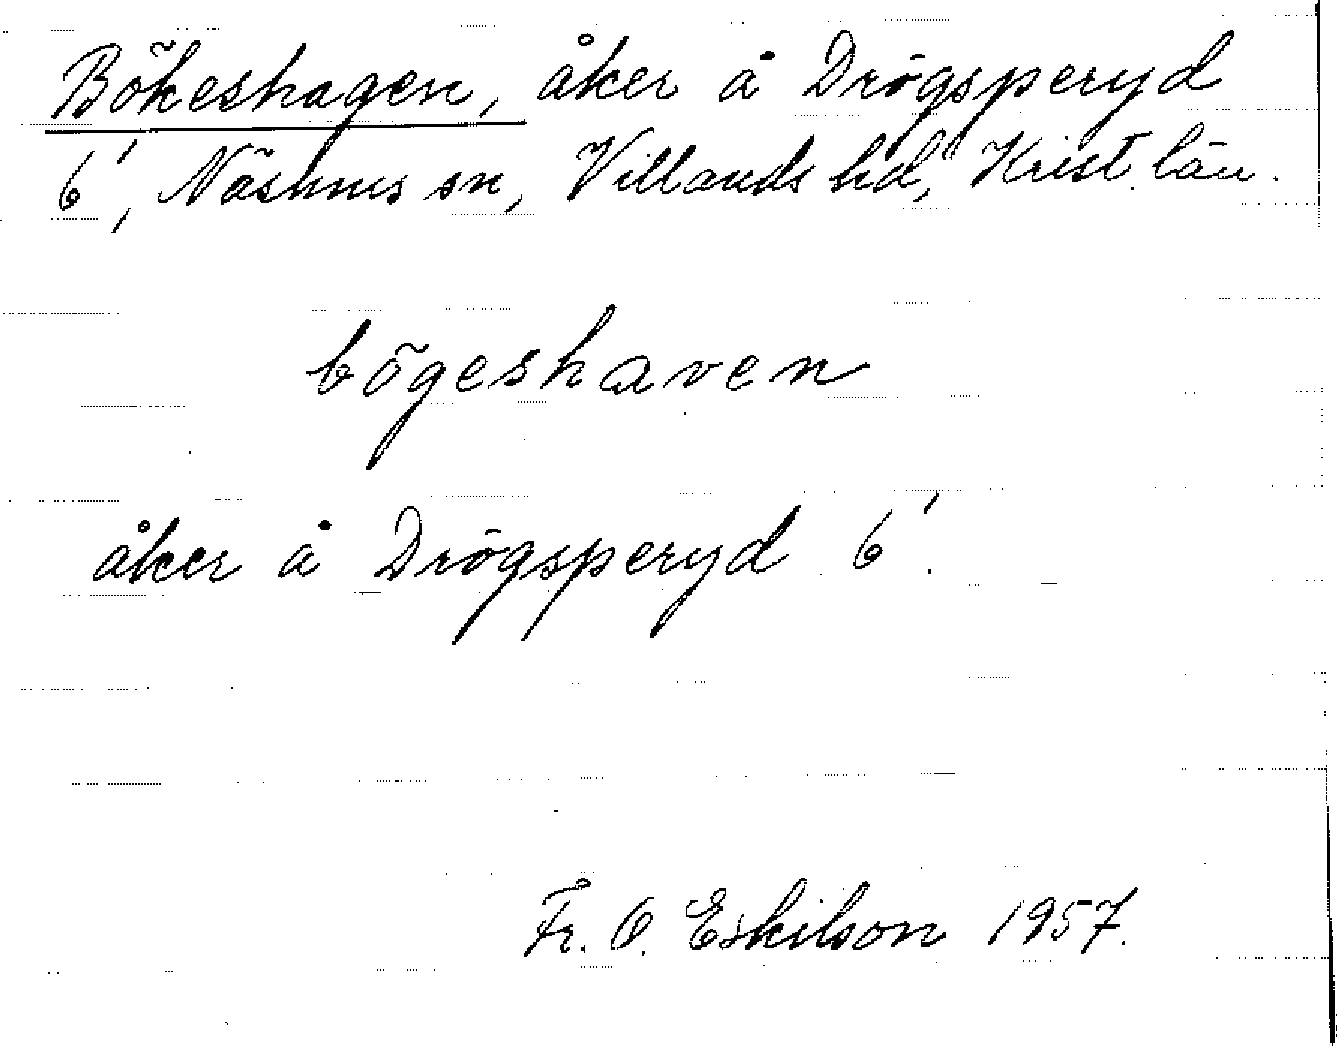 Bökeshagen, åker å Drögsperyd
6', Näsums sn, Villands hd, Krist. län.
bögeshaven
åker å Drögsperyd 6'.
Fr. O. Eskilson 1957.